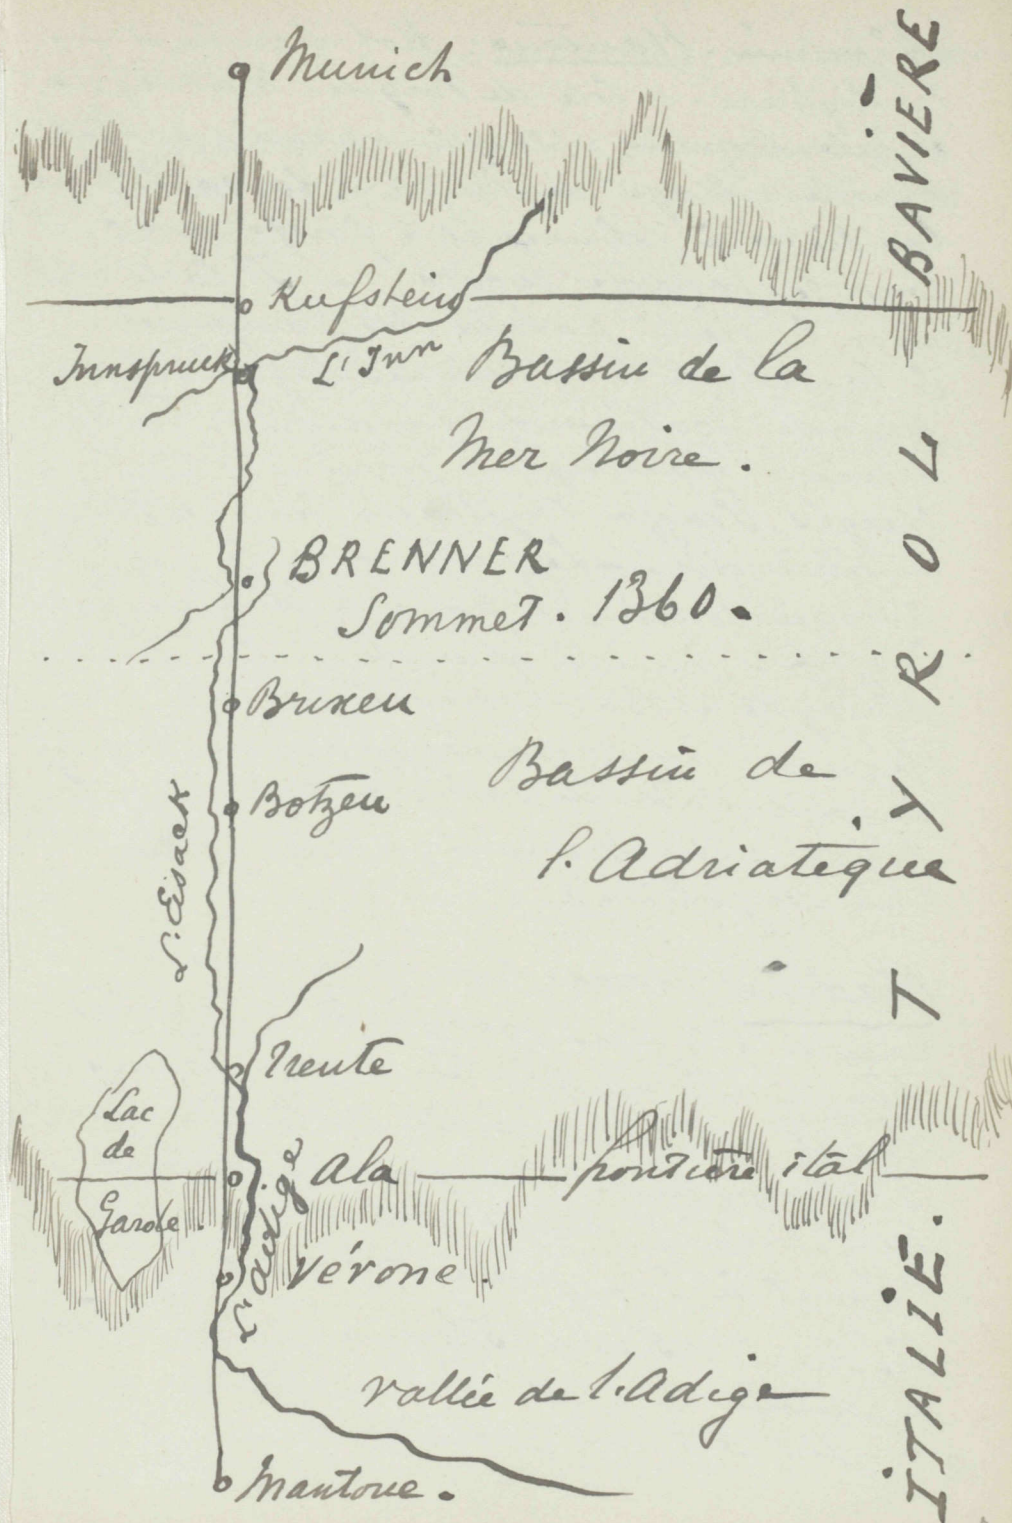 Munich
BAVIÈRE
Kufstein
Innspruck
L'Inn
Bassin de la
Mer Noire.
BRENNER
Sommet. 1360.
TYROL
Brixen
Botzen
Bassin de
l'Adriatique
L'Eisack
Trente
Lac
de
Garde.
Ala
frontière ital
L'adige
Vérone.
ITALIE.
vallée de l'Adige
Mantoue.